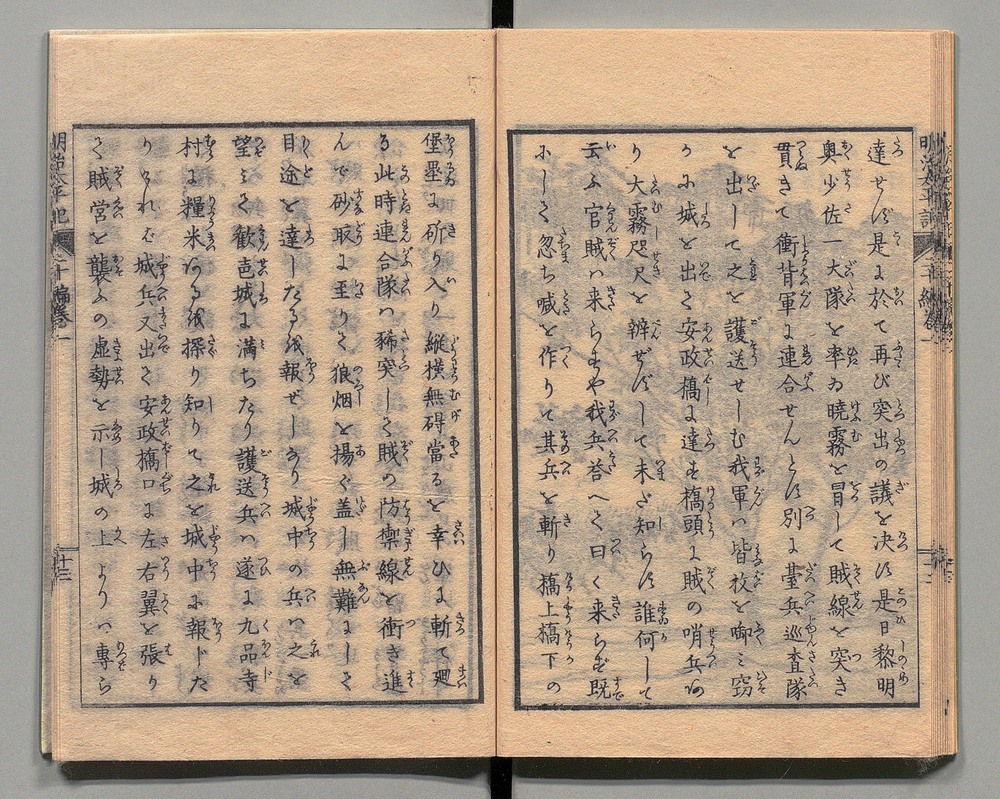 達せず是に於て再び突出の議を决す是日黎明
奥少佐一大隊を率ゐ曉霧を冒して賊線を突き
貫きて衝背軍に連合せんとす別に臺兵巡査隊
を出して之を護送せしむ我軍ハ皆枚を啣ミ窃
かに城を出で安政橋に達す橋頭に賊の哨兵あ
り大霧咫尺を辨ぜずして未だ知らず誰何して
云ふ官賊ハ来らずや我兵答へて曰く来らず既
にして忽ち喊を作りて其兵を斬り橋上橋下の
堡壘に斫り入り縱横無碍當ると幸ひに斬て廻
る此時連合隊ハ豨突して賊の防禦線を衝き進
んで砂取に至りて狼烟を揚ぐ盖し無難にして
目途を達したるを報ぜしなり城中の兵ハ之を
望ミて歓聲城に満ちたり護送兵ハ遂に九品寺
村に糧米あるを探り知りて之を城中に報じた
りければ城兵又出て安政橋口に左右翼を張り
て賊営を襲ふの虚勢を示し城の上よりハ專ら
明治太平記
二十編巻一
十三